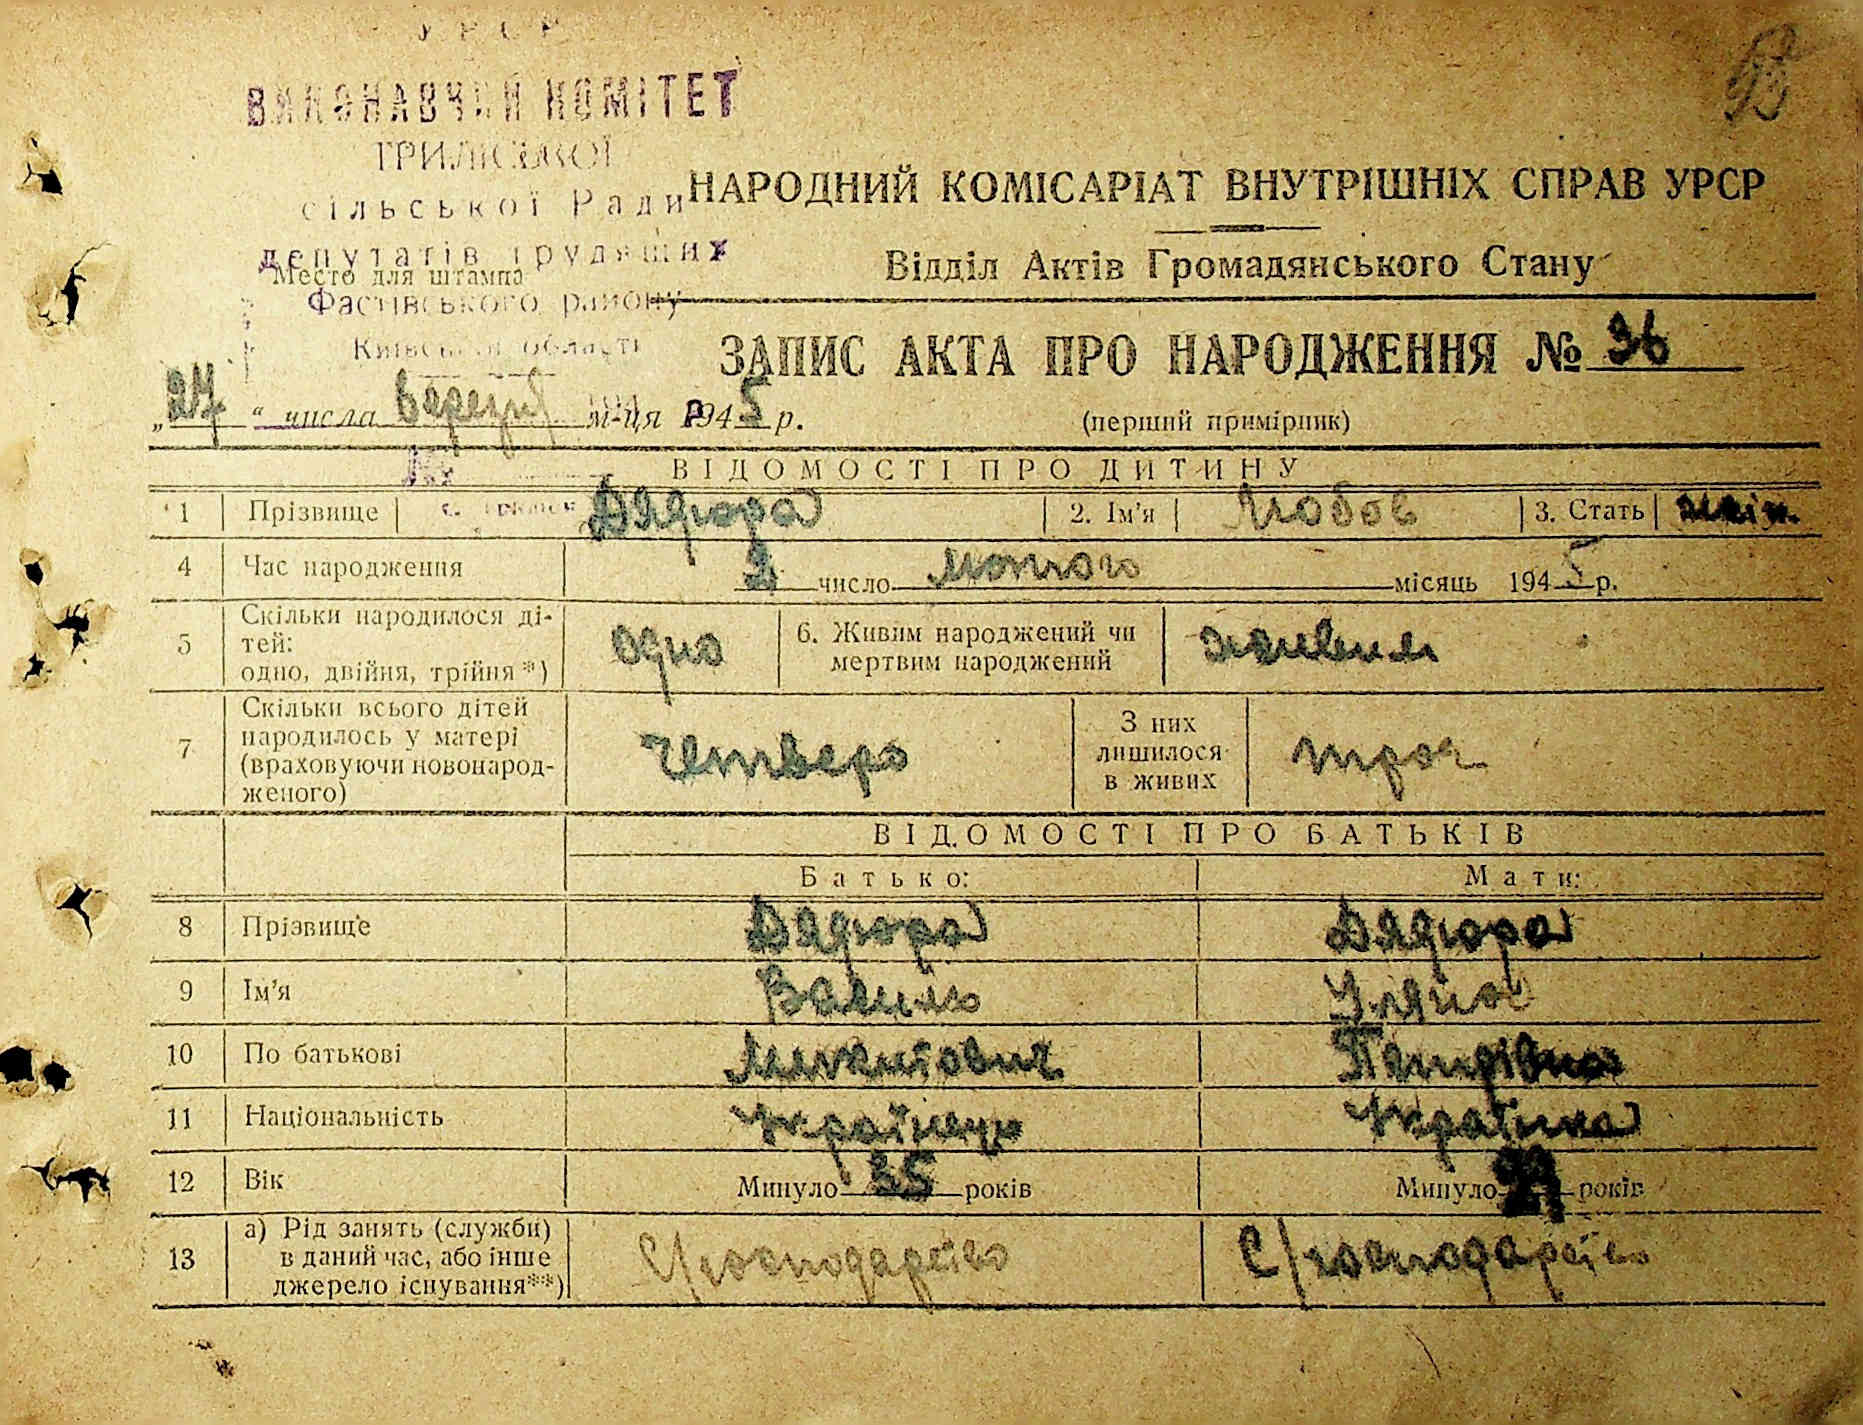 УРСР
ВИКОНАВЧИЙ КОМІТЕТ
ТРИЛІСЬКОЇ
сільської Ради
депутатів трудящих
Место для штампа
Фастівського району
Київської області
НАРОДНИЙ КОМІСАРІАТ ВНУТРІШНІХ СПРАВ УРСР
Відділ Актів Громадянського Стану
ЗАПИС АКТА ПРО НАРОДЖЕННЯ № 36
„27“ числа березня м-ця 1945 р.
(перший примірник)
ВІДОМОСТІ ПРО ДИТИНУ
1 Прізвище Дядюра 2. Ім'я Любов 3. Стать жін.
4 Час народження 2 число лютого місяць 1945 р.
5 Скільки народилося ді-
тей:
одно, двійня, трійня *) одно 6. Живим народжений чи
мертвим народжений живим
7 Скільки всього дітей
народилось у матері
(враховуючи новонарод-
женого) четверо З них
лишилося
в живих троє
ВІДОМОСТІ ПРО БАТЬКІВ
Батько: Мати:
8 Прізвище Дядюра Дядюра
9 Ім'я Василь Уляна
10 По батькові Микитович Петрівна
11 Національність Українець Українка
12 Вік Минуло 35 років Минуло років
13 а) Рід занять (служби)
в даний час, або інше
джерело існування**) С/господарство С/господарство